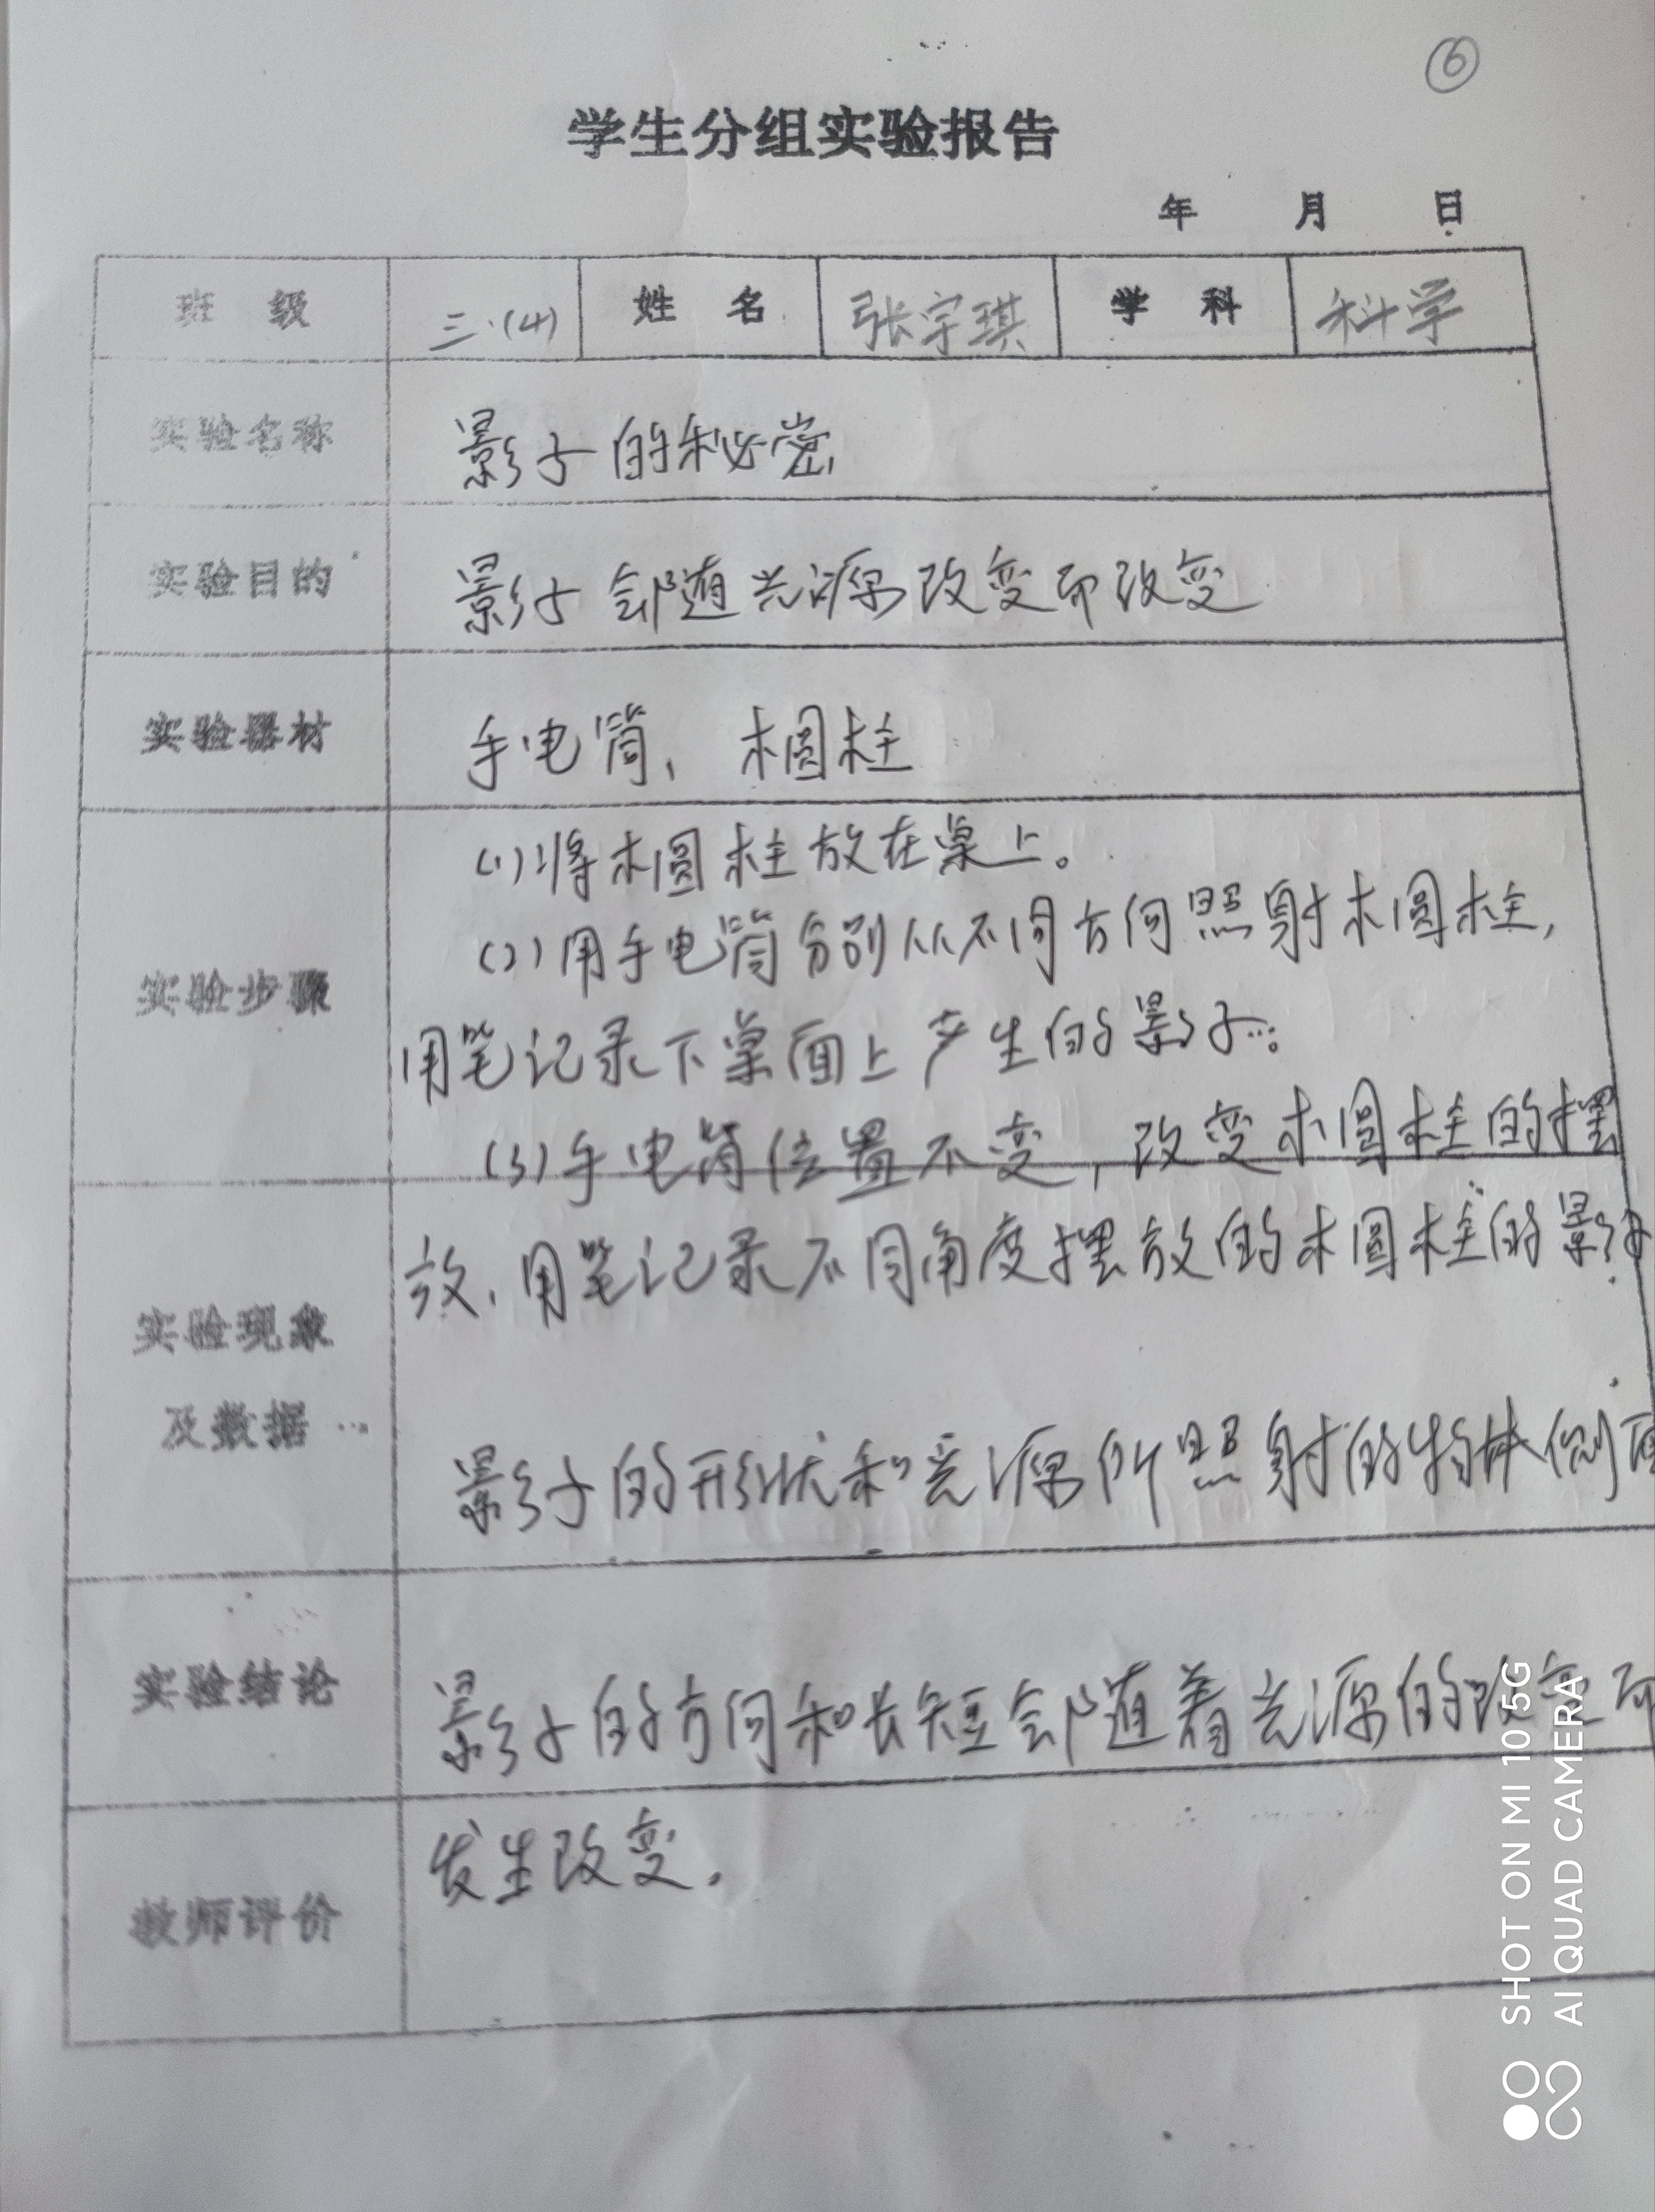 ⑥
学生分组实验报告
年 月 日
班 级 三.(4) 姓 名 张宇琪 学 科 科学
实验名称 影子的秘密
实验目的 影子会随光源改变而改变
实验器材 手电筒、木圆柱
(1)将木圆柱放在桌上。
(2)用手电筒分别从不同方向照射木圆柱,
实验步骤
用笔记录下桌面上产生的影子。
(3)手电筒位置不变,改变木圆柱的摆
放、用笔记录不同角度摆放的木圆柱的影子
实验现象
及数据
影子的形状和光源所照射的物体侧面
实验结论 影子的方向和长短会随着光源的改变而
发生改变.
教师评价
SHOT ON MI 10 5G
AI QUAD CAMERA